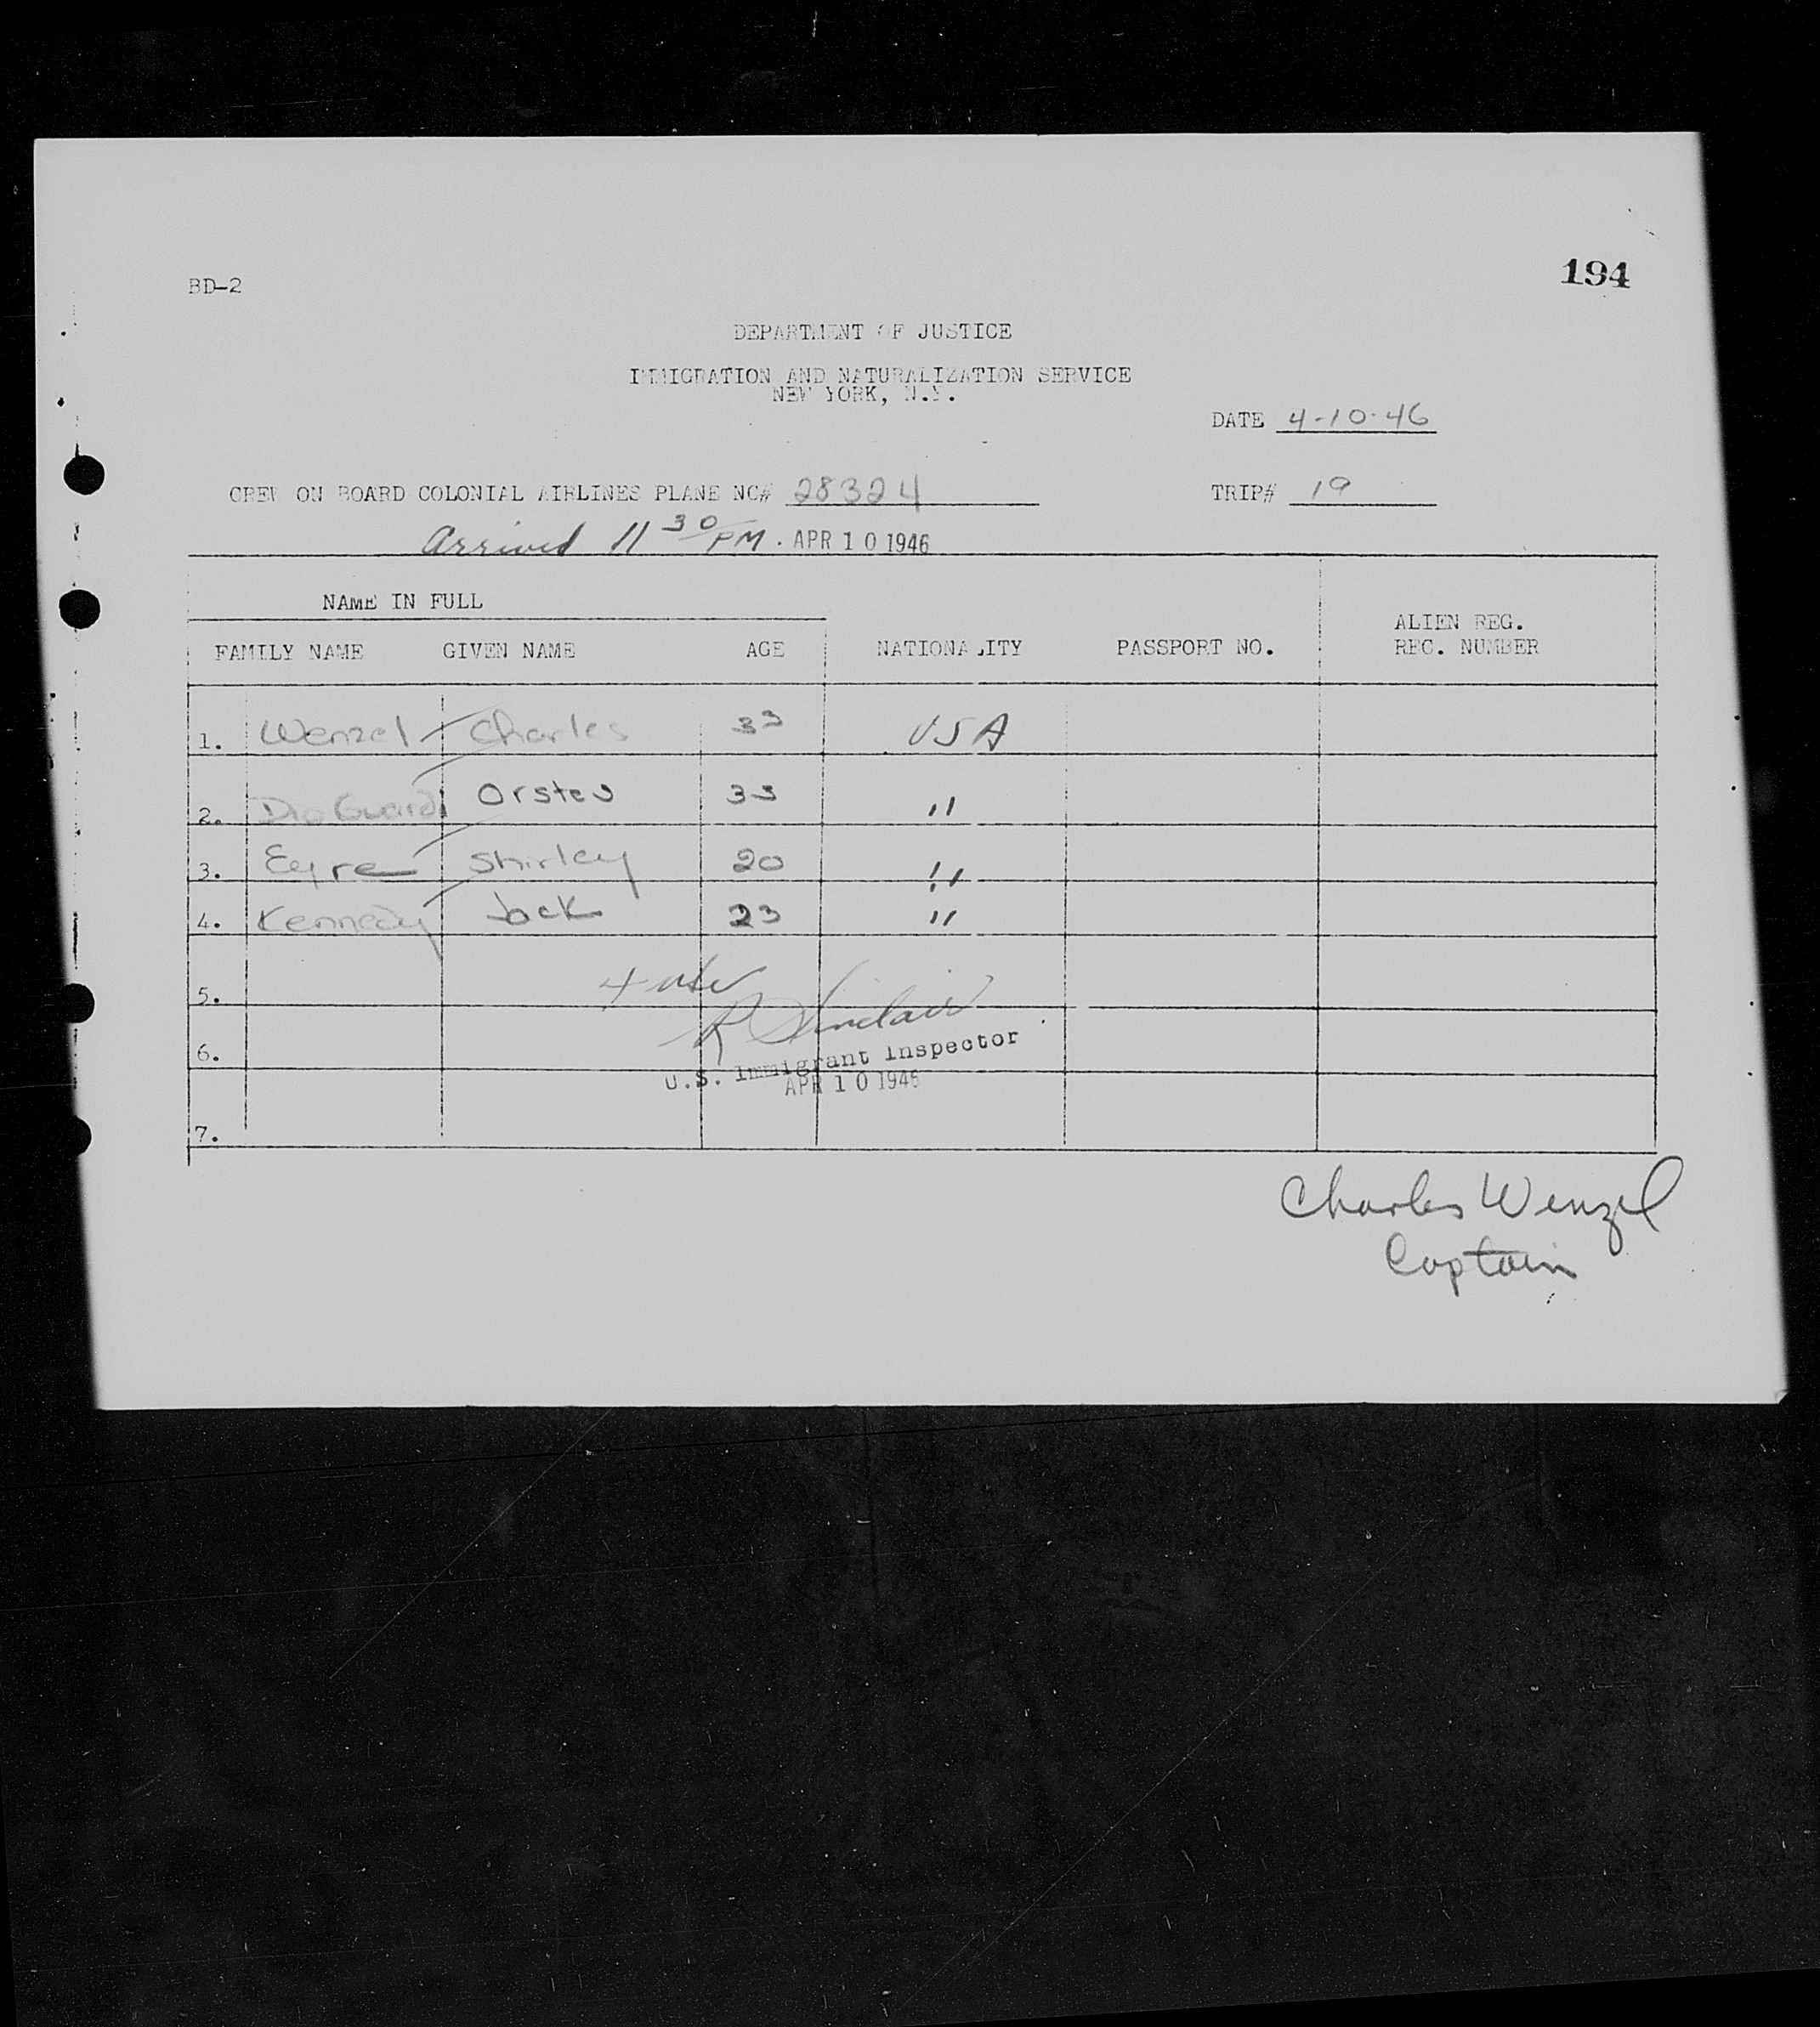 BD-2
194
DEPARTMENT OF JUSTICE
IMMIGRATION AND NATURALIZATION SERVICE
NEW YORK, N.Y.
DATE 4-10-46
CREW ON BOARD COLONIAL AIRLINES PLANE NC# 28324 TRIP# 19
Arrived 11 30 PM. APR 10 1946
NAME IN FULL
FAMILY NAME GIVEN NAME AGE NATIONALITY PASSPORT NO. ALIEN REG. REC. NUMBER
1. Wenzel Charles 33 USA
2. DioGuardi 33 "
3. Eyre Shirley 20 "
4. Kennedy Jack 23 "
5.
6.
7.
4
R Sinclair
U.S. Immigrant Inspector
APR 10 1946
Charles Wenzel
Captain